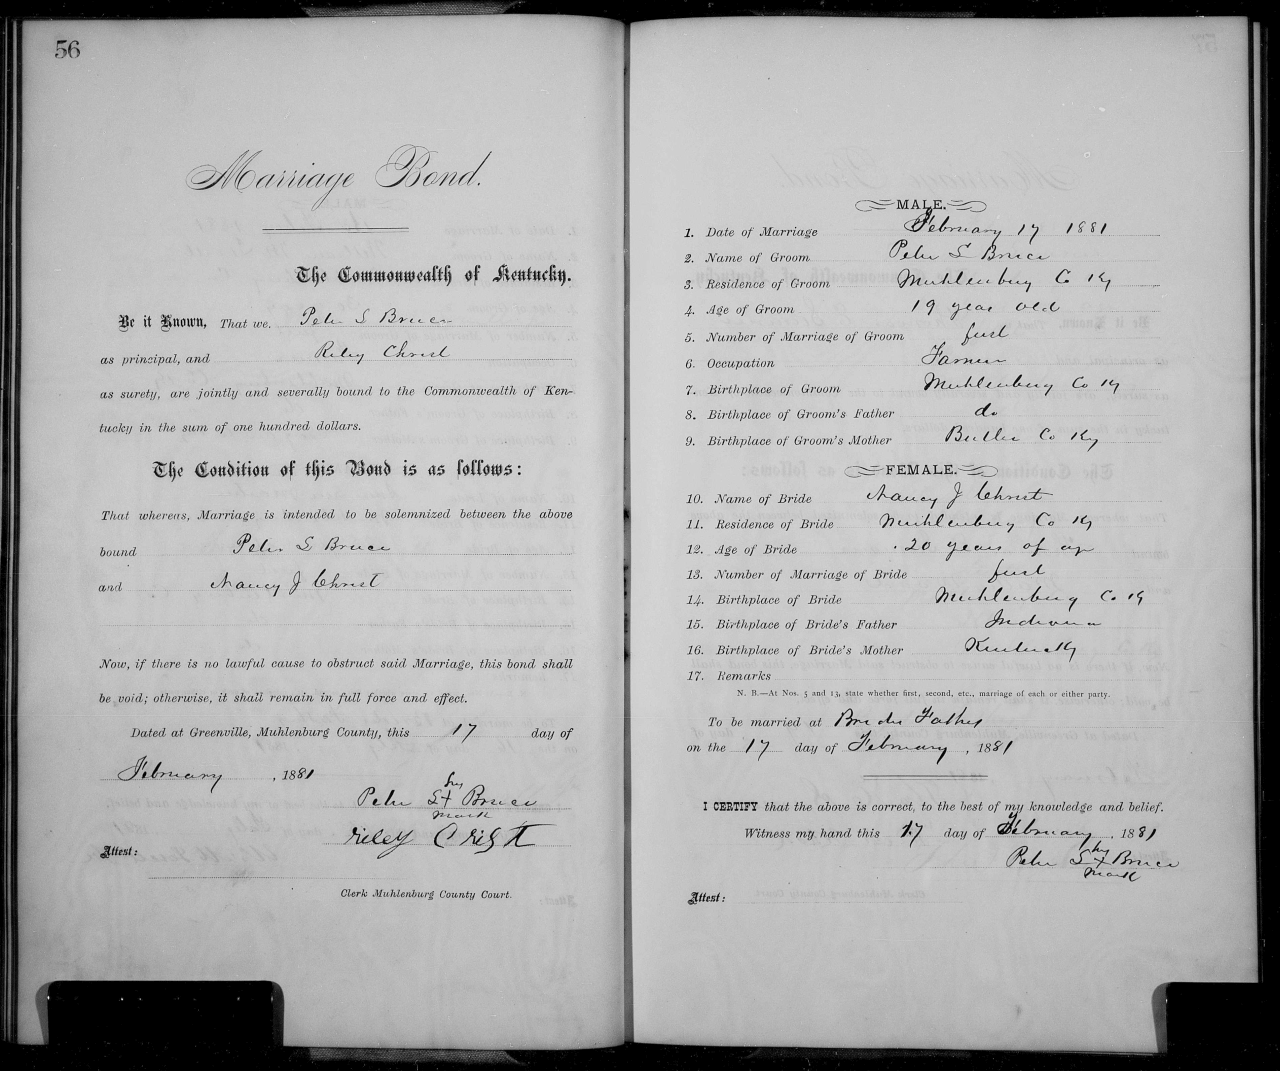 56
Marriage Bond.
The Commonwealth of Kentucky.
Be it Known, That we, Peter S Bruce
as principal, and Riley Christ
as surety, are jointly and severally bound to the Commonwealth of Ken-
tucky in the sum of one hundred dollars.
The Condition of this Bond is as follows:
That whereas, Marriage is intended to be solemnized between the above
bound Peter S Bruce
and Nancy J Christ
Now, if there is no lawful cause to obstruct said Marriage, this bond shall
be void; otherwise, it shall remain in full force and effect.
Dated at Greenville, Muhlenburg County, this 17 day of
February, 1881
his
Peter S + Bruce
mark
riley Crist
Attest:
Clerk Muhlenburg County Court.
MALE.
1. Date of Marriage February 17 1881
2. Name of Groom Peter S Bruce
3. Residence of Groom Muhlenburg Co Ky
4. Age of Groom 19 year old
5. Number of Marriage of Groom first
6. Occupation Farmer
7. Birthplace of Groom Muhlenburg Co Ky
8. Birthplace of Groom's Father do
9. Birthplace of Groom's Mother Butler Co Ky
FEMALE.
10. Name of Bride Nancy J Christ
11. Residence of Bride Muhlenburg Co Ky
12. Age of Bride 20 years of age
13. Number of Marriage of Bride first
14. Birthplace of Bride Muhlenburg Co Ky
15. Birthplace of Bride's Father Indiana
16. Birthplace of Bride's Mother Kentucky
17. Remarks
N. B.—At Nos. 5 and 13, state whether first, second, etc., marriage of each or either party.
To be married at Brides Fathers
on the 17 day of February, 1881
I CERTIFY that the above is correct, to the best of my knowledge and belief.
Witness my hand this 17 day of February, 1881
his
Peter S + Bruce
mark
Attest: